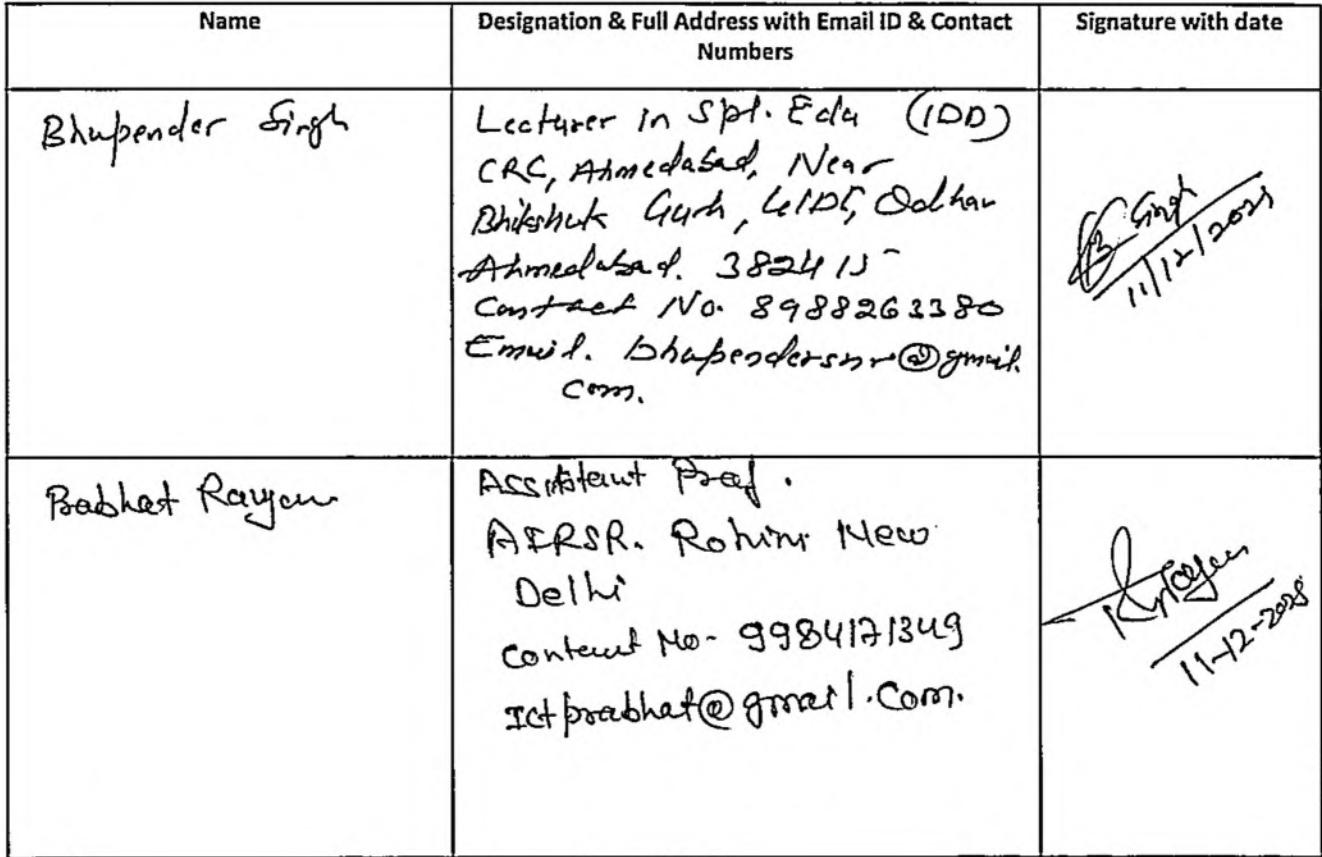 Name
Designation & Full Address with Email ID & Contact
Numbers
Signature with date
Bhupender Singh
Lecturer in Spl. Edu (IDD)
CRC, Ahmedabad, Near
Bhikshuk Gurh, GIDC, Odhav
Ahmedabad. 382415
Contact No. 8988263380
Email. bhupendersnr@gmail.
com.
B Singh
11/12/2025
Prabhat Ranjan
Assistant Prof.
AIRSR. Rohini New
Delhi
Contact No- 9984171349
Ictprabhat@gmail.com.
11-12-2025